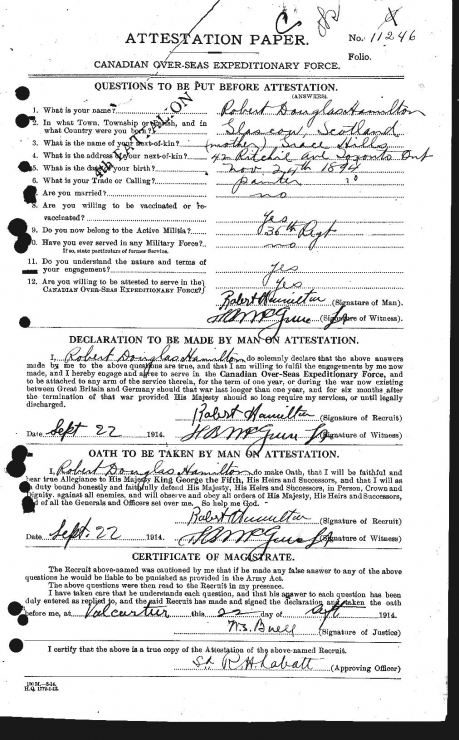 ATTESTATION PAPER.
No. 11246
Folio.
CANADIAN OVER-SEAS EXPEDITIONARY FORCE.
QUESTIONS TO BE PUT BEFORE ATTESTATION.
(ANSWERS)
1. What is your name? Robert Douglas Hamilton
2. In what Town, Township or Parish, and in
what Country were you born? Glascow, Scotland
3. What is the name of your next-of-kin? (mother) Grace Hills
4. What is the address of your next-of-kin? Ritchie Ave Toronto Ont
5. What is the date of your birth? Nov 24th 1894
6. What is your Trade or Calling? painter
Are you married? no
8. Are you willing to be vaccinated or re-
vaccinated? Yes
9. Do you now belong to the Active Militia? 36th Regt
0. Have you ever served in any Military Force? no
If so, state particulars of former Service.
11. Do you understand the nature and terms of
your engagement? Yes
12. Are you willing to be attested to serve in the
CANADIAN OVER-SEAS EXPEDITIONARY FORCE? Yes
Robert Hamilton (Signature of Man).
(Signature of Witness).
DECLARATION TO BE MADE BY MAN ON ATTESTATION.
I, Robert Douglas Hamilton, do solemnly declare that the above answers
made by me to the above questions are true, and that I am willing to fulfil the engagements by me now
made, and I hereby engage and agree to serve in the Canadian Over-Seas Expeditionary Force, and
to be attached to any arm of the service therein, for the term of one year, or during the war now existing
between Great Britain and Germany should that war last longer than one year, and for six months after
the termination of that war provided His Majesty should so long require my services, or until legally
discharged.
Robert Hamilton (Signature of Recruit)
Date Sept 22 1914. (Signature of Witness)
OATH TO BE TAKEN BY MAN ON ATTESTATION.
I, Robert Douglas Hamilton, do make Oath, that I will be faithful and
bear true Allegiance to His Majesty King George the Fifth, His Heirs and Successors, and that I will as
in duty bound honestly and faithfully defend His Majesty, His Heirs and Successors, in Person, Crown and
Dignity, against all enemies, and will observe and obey all orders of His Majesty, His Heirs and Successors,
and of all the Generals and Officers set over me. So help me God.
Robert Hamilton (Signature of Recruit)
Date Sept. 22 1914. (Signature of Witness)
CERTIFICATE OF MAGISTRATE.
The Recruit above-named was cautioned by me that if he made any false answer to any of the above
questions he would be liable to be punished as provided in the Army Act.
The above questions were then read to the Recruit in my presence.
I have taken care that he understands each question, and that his answer to each question has been
duly entered as replied to, and the said Recruit has made and signed the declaration and taken the oath
before me, at Valcartier this 22 day of Sept 1914.
W.S. Buell (Signature of Justice)
I certify that the above is a true copy of the Attestation of the above-named Recruit.
Sd R H Labatt (Approving Officer)
H.Q. 1772-1-13.